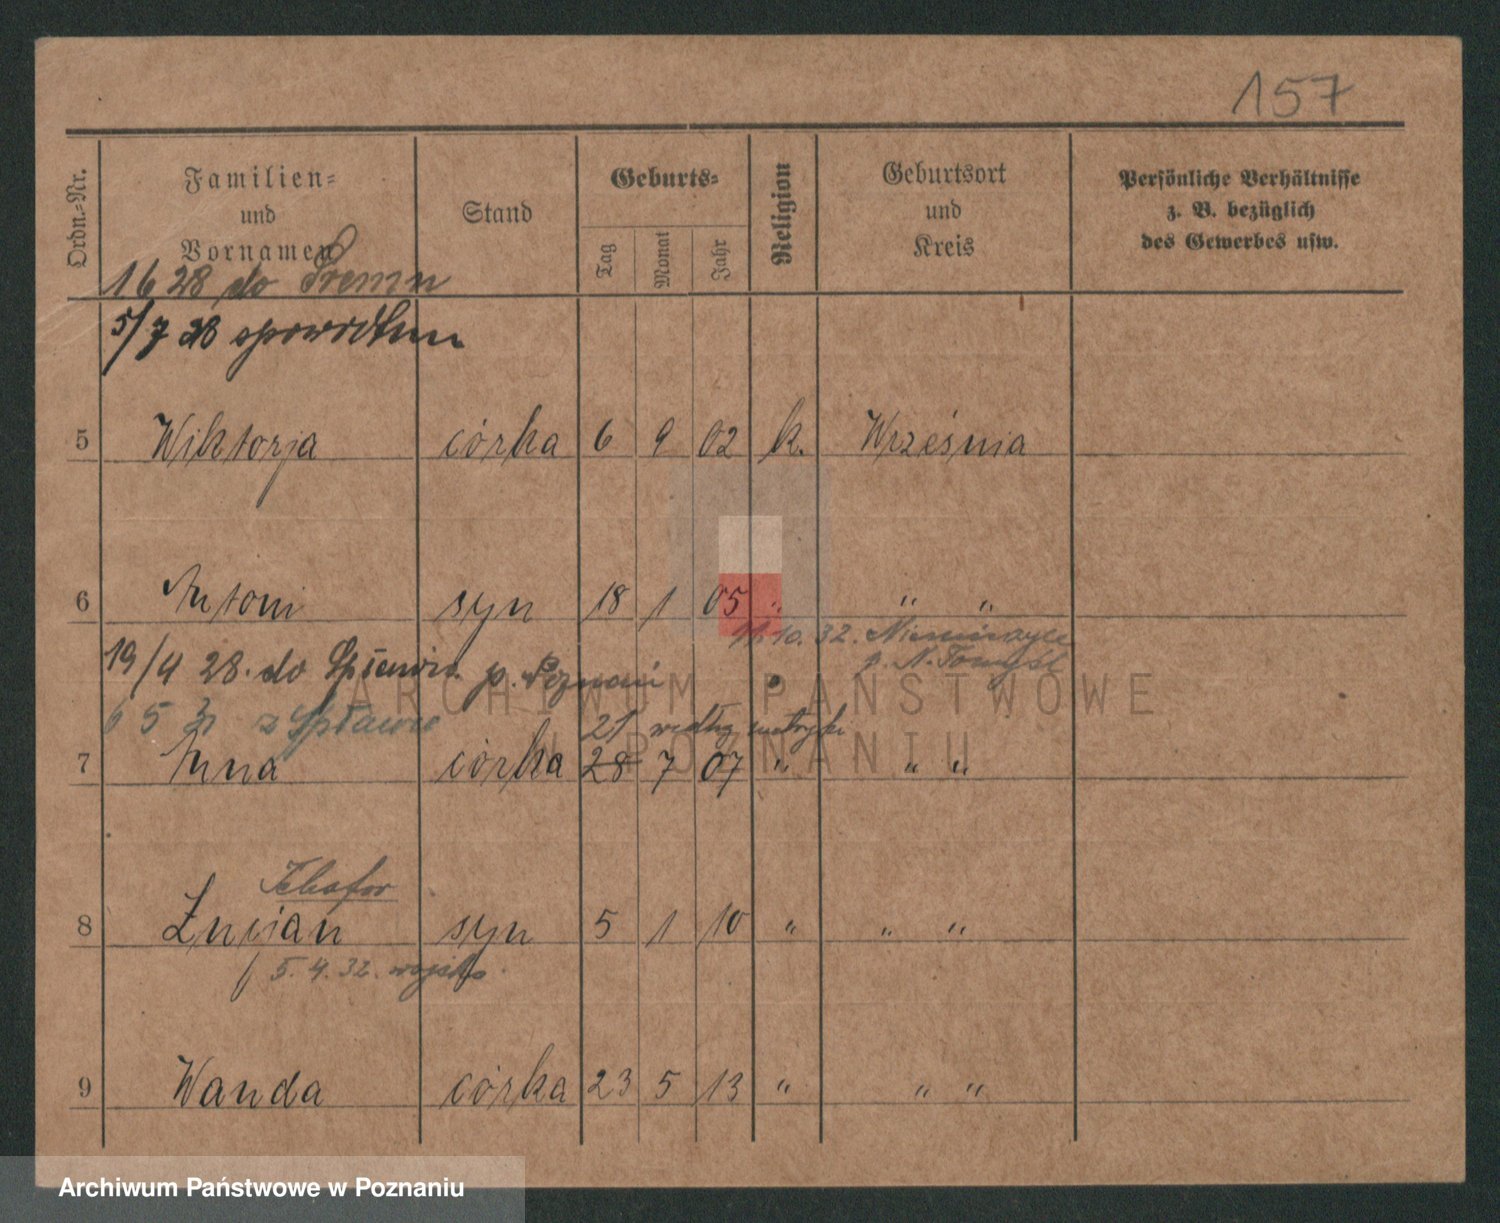 157
Ordn.-Nr.
Familien-
und
Vornamen
Stand
Geburts-
Tag
Monat
Jahr
Religion
Geburtsort
und
Kreis
Persönliche Verhältnisse
z. B. bezüglich
des Gewerbes usw.
1 6 28 do Śremu
5/7 28 spowrotem
5 Wiktorja córka 6 9 02 k. Września
6 Antoni syn 18 1 05 " " "
11.10.32.
p. N. Tomyśl
19/4 28. do p. Poznań
6 5 z Spławie
21 według metryki
7 Anna córka 28 7 07 " " "
8 Łucjan syn 5 1 10 " " "
5. 4. 32. wojsko
9 Wanda córka 23 5 13 " " "
ARCHIWUM PAŃSTWOWE
W POZNANIU
Archiwum Państwowe w Poznaniu